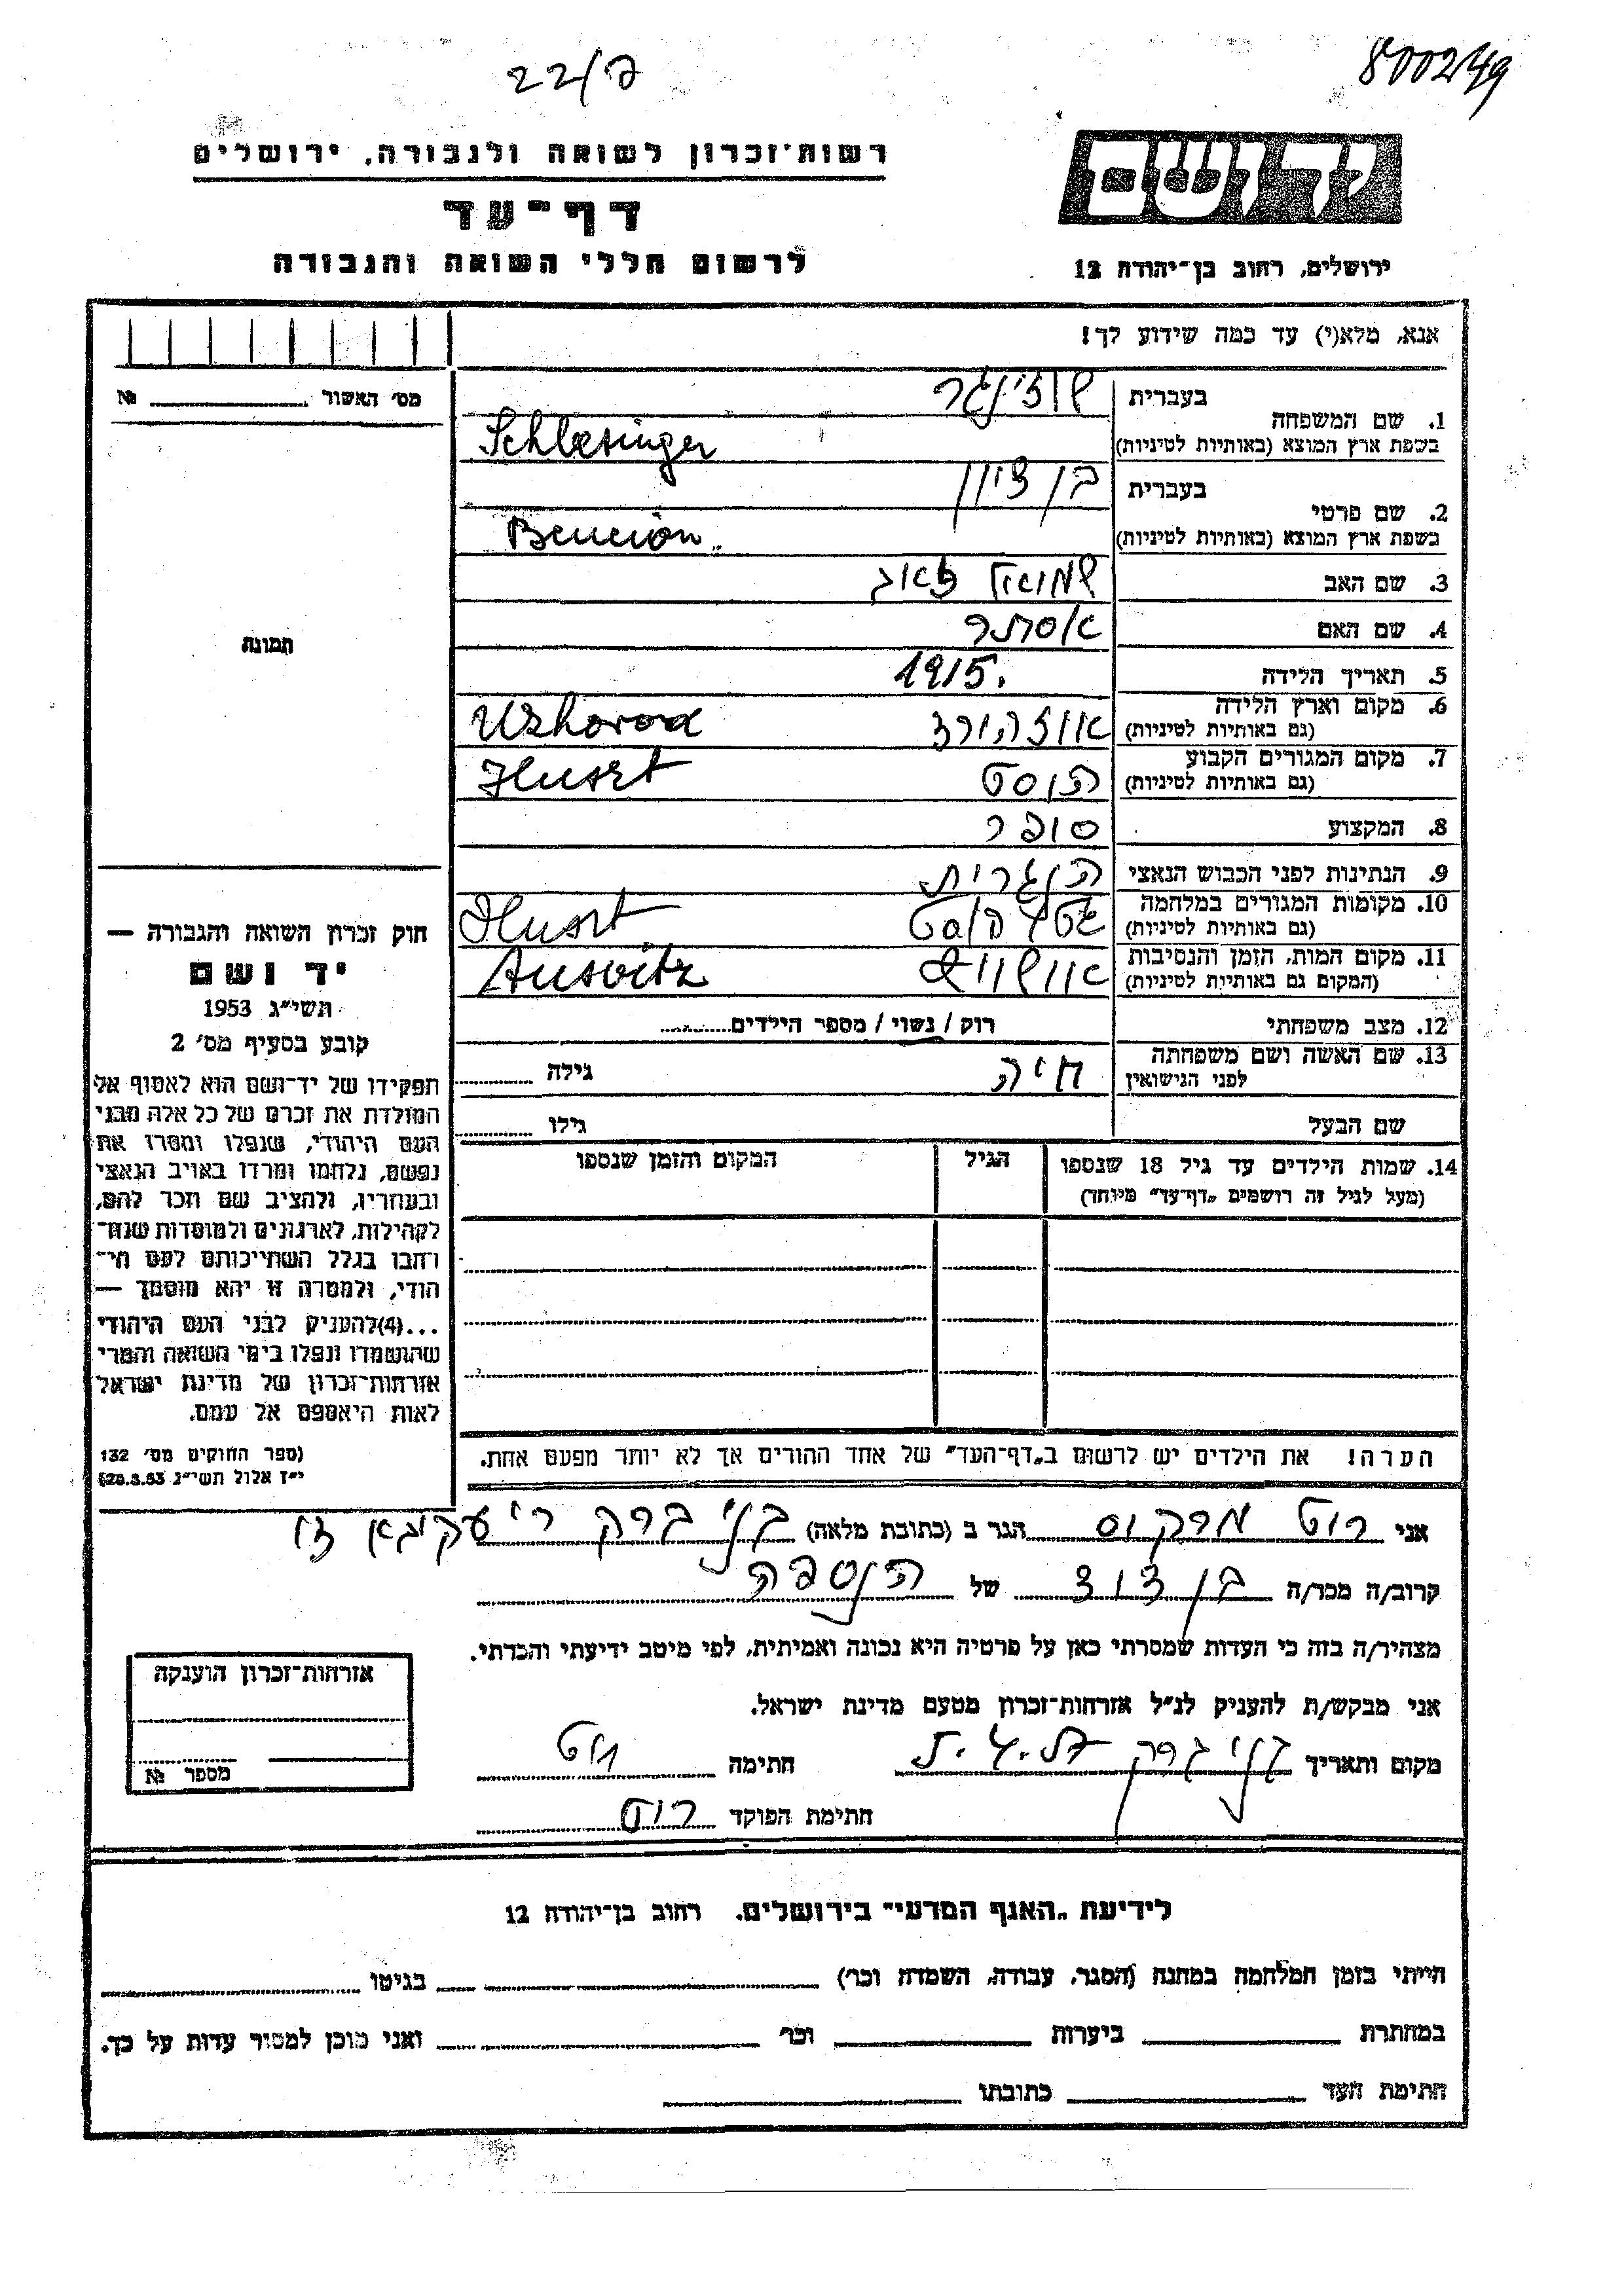 22/ק
800249
יד ושם
רשות־זכרון לשואה ולגבורה, ירושלים
דף־עד
לרשום חללי השואה והגבורה
ירושלים, רחוב בן־יהודה 12
אנא, מלא(י) עד כמה שידוע לך!
מס׳ האשור № 
בעברית שלזינגר
1. שם המשפחה
בשפת ארץ המוצא (באותיות לטיניות) Schlesinger
בעברית בן ציון
2. שם פרטי
בשפת ארץ המוצא (באותיות לטיניות) Bencion
3. שם האב שמואל זאב
4. שם האם אסתר
5. תאריך הלידה 1915.
6. מקום וארץ הלידה
(גם באותיות לטיניות) אוזהורד Uzhorod
7. מקום המגורים הקבוע
(גם באותיות לטיניות) הוסט Huszt
8. המקצוע סופר
9. הנתינות לפני הכבוש הנאצי הונגרית
10. מקומות המגורים במלחמה
(גם באותיות לטיניות) הוסט Huszt
11. מקום המות, הזמן והנסיבות
(המקום גם באותיות לטיניות) אושוויץ Ausvitz
12. מצב משפחתי רוק / נשוי / מספר הילדים
13. שם האשה ושם משפחתה
לפני הנישואין חיה גילה
שם הבעל גילו
14. שמות הילדים עד גיל 18 שנספו הגיל המקום והזמן שנספו
(מעל לגיל זה רושמים „דף־עד" מיוחד)
הערה! את הילדים יש לרשום ב„דף־העד" של אחד ההורים אך לא יותר מפעם אחת.
תמונה
חוק זכרון השואה והגבורה —
יד ושם
תשי״ג 1953
קובע בסעיף מס׳ 2
תפקידו של יד־ושם הוא לאסוף אל
המולדת את זכרם של כל אלה מבני
העם היהודי, שנפלו ומסרו את
נפשם, נלחמו ומרדו באויב הנאצי
ובעוזריו, ולהציב שם וזכר להם,
לקהילות, לארגונים ולמוסדות שנח־
רבו בגלל השתייכותם לעם הי־
הודי, ולמטרה זו יהא מוסמך —
...(4)להעניק לבני העם היהודי
שהושמדו ונפלו בימי השואה והמרי
אזרחות־זכרון של מדינת ישראל
לאות היאספם אל עמם.
(ספר החוקים מס׳ 132
י״ז אלול תשי״ג 28.8.53)
אני רוט מרקוס הגר ב (כתובת מלאה) בני ברק ר׳ יעקובזון
קרוב/ה מכר/ה בן דוד של הנספה
מצהיר/ה בזה כי העדות שמסרתי כאן על פרטיה היא נכונה ואמיתית, לפי מיטב ידיעתי והכרתי.
אני מבקש/ת להעניק לנ״ל אזרחות־זכרון מטעם מדינת ישראל.
מקום ותאריך בני ברק חתימה רוט
חתימת הפוקד רוט
אזרחות־זכרון הוענקה
מספר №
לידיעת „האגף המדעי" בירושלים. רחוב בן־יהודה 12
הייתי בזמן המלחמה במחנה (הסגר, עבודה, השמדה וכו׳) בגיטו
במחתרת ביערות וכו׳ ואני מוכן למסור עדות על כך.
חתימת העד כתובתו